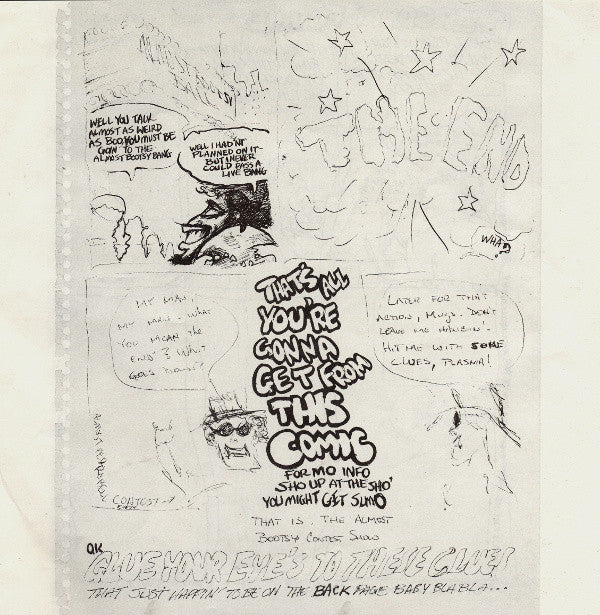 WELL YOU TALK
ALMOST AS WEIRD
AS BOO. YOU MUST BE
GOIN' TO THE
ALMOST BOOTSY BANG
WELL I HAD'NT
PLANNED ON IT
BUT I NEVER
COULD PASS A
LIVE BANG
THE END
WHA?
MY MAN,
MY MAN. WHAT
YOU MEAN THE
END? WHAT
GOES DOWN?
CONTEST
THAT'S ALL
YOU'RE
GONNA
GET FROM
THIS
COMIC
FOR MO INFO
SHO UP AT THE SHO'
YOU MIGHT GIT SUMO
THAT IS. THE ALMOST
BOOTSY CONTEST SHOW
LATER FOR THAT
ACTION, MUGS. DON'T
LEAVE ME HANGIN'!
HIT ME WITH SOME
CLUES, PLASMA!
OK
GLUE YOUR EYE'S TO THESE CLUES
THAT JUST HAPPIN' TO BE ON THE BACK PAGE BABY BLABLA...